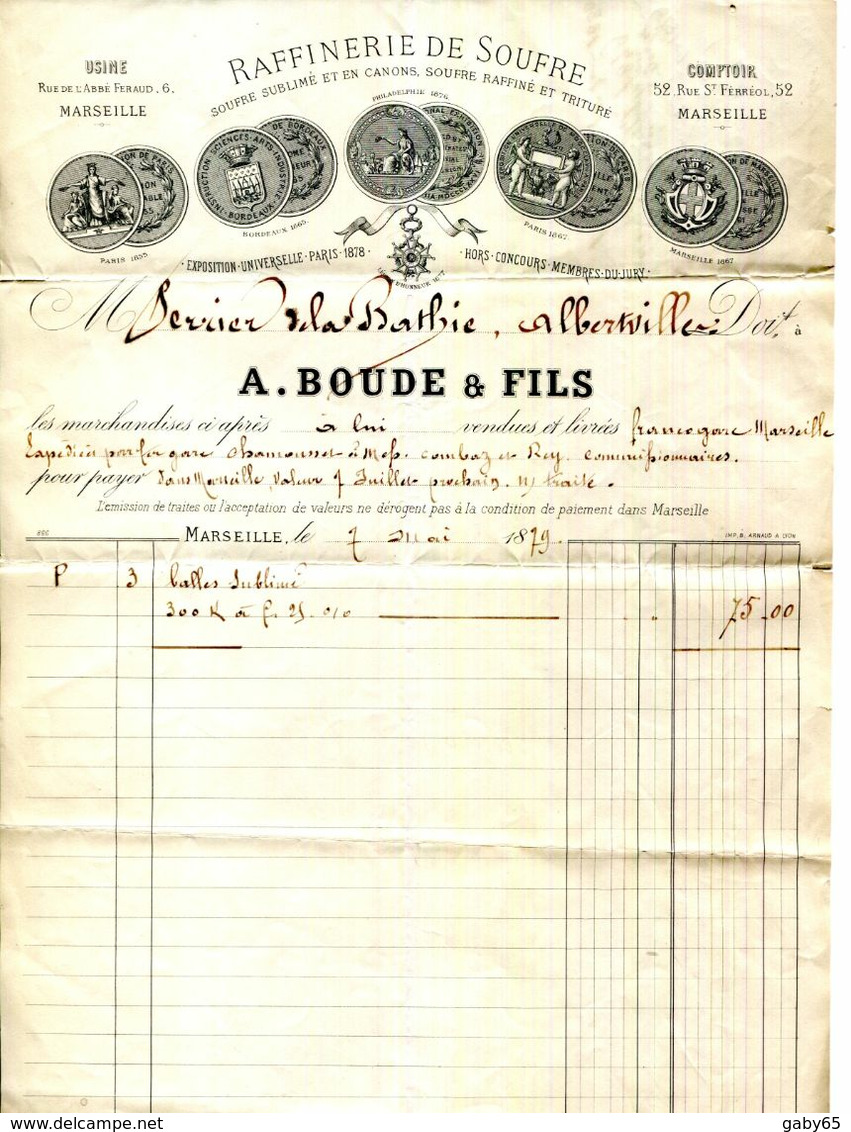 RAFFINERIE DE SOUFRE
SOUFRE SUBLIMÉ ET EN CANONS, SOUFRE RAFFINÉ ET TRITURÉ
USINE
RUE DE L'ABBÉ FERAUD, 6,
MARSEILLE
COMPTOIR
52, RUE ST FÈRRÉOL, 52
MARSEILLE
PHILADELPHIE 1876
INSTRUCTION SCIENCES-ARTS-INDUSTRIE
BORDEAUX
PARIS 1855
BORDEAUX 1865
PARIS 1867
MARSEILLE 1867
EXPOSITION·UNIVERSELLE·PARIS·1878·
·HORS·CONCOURS·MEMBRES·DU·JURY·
M Perrier de la Bathie, Albertville Doit à
A. BOUDE & FILS
les marchandises ci après à lui vendues et livrées franco gare Marseille
Expédiées par fer gare Chamousset à Mess. Combaz et Rey. Commissionnaires.
pour payer dans Marseille, valeur 7 Juillet prochain. n/ traite.
L'émission de traites ou l'acceptation de valeurs ne dérogent pas à la condition de paiement dans Marseille
MARSEILLE, le 7 Mai 1879
IMP. B. ARNAUD A LYON
P 3 balles Sublimé
300 K à f. 25. 0/0 75.00
gaby65